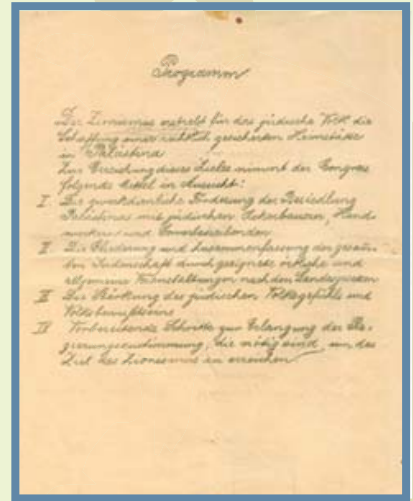 Programm
Der Zionismus erstrebt für das jüdische Volk die
Schaffung einer rechtlich gesicherten Heimstätte
in Palästina
Zur Erreichung dieses Zieles nimmt der Congress
folgende Mittel in Aussicht:
I Die zweckdienliche Förderung der Besiedlung
Palästinas mit jüdischen Ackerbauern, Hand-
werkern und Gewerbetreibenden
II Die Gliederung und Zusammenfassung der gesam-
ten Judenschaft durch geeignete örtliche und
allgemeine Veranstaltungen nach den Landesgesetzen
III Die Stärkung des jüdischen Volksgefühls und
Volksbewußtseins
IV Vorbereitende Schritte zur Erlangung der Re-
gierungszustimmung, die nötig sind, um das
Ziel des Zionismus zu erreichen